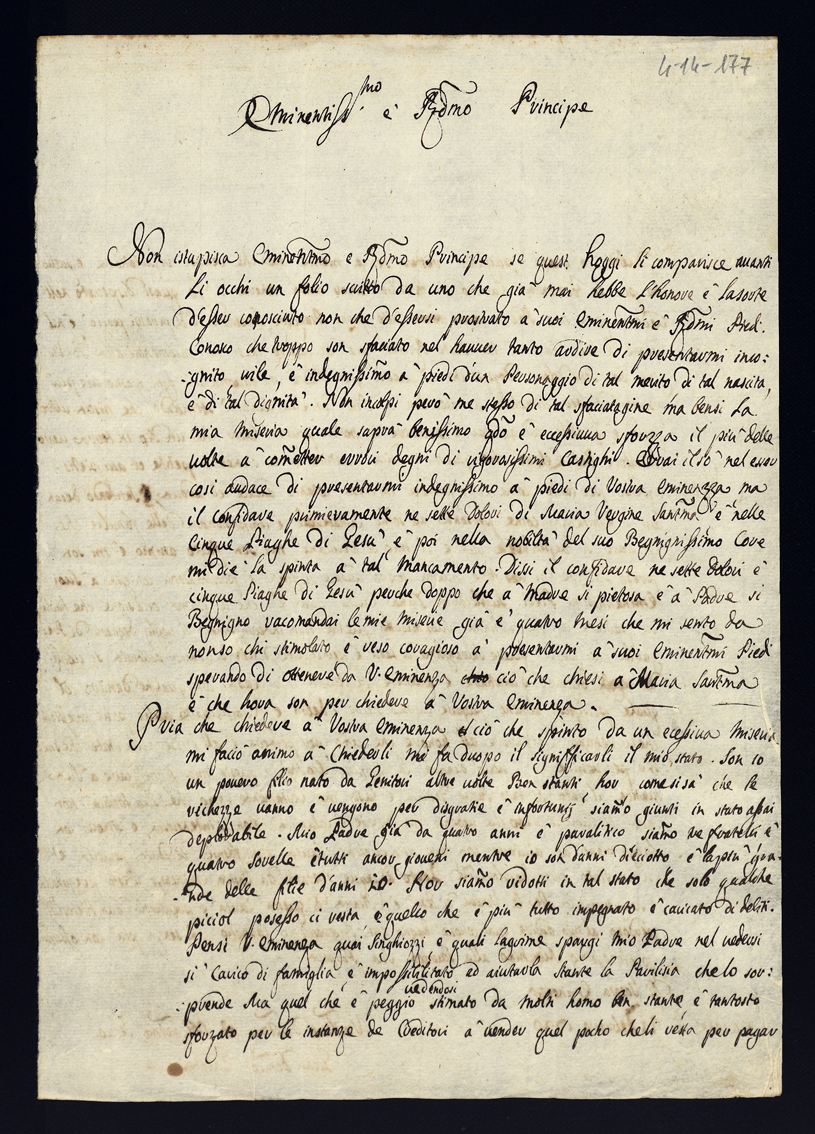 4-14-177
Eminentiss.mo è R̃dmo Principe
Non istupisca Eminentmo e R̃dmo Principe se quest hoggi li comparisce auanti
Li occhi un folio scritto da uno che già mai hebbe l'honore è la sorte
d'esser conosciuto non che d'essersi prostrato à suoi Eminentmi è R̃dmi Piedi.
Conosco che troppo son sfaciato nel hauuer tanto ardire di presentarmi inco:
:gnito uile, è indegnissimo à piedi d'un Personaggio di tal merito di tal nascita,
è di tal dignità. Non incolpi però me stesso di tal sfaciatagine ma bensi la
mia miseria quale saprà benissimo qdo è ecessiuua sforzza il più delle
uolte à cometter errori degni di rigorosissimi Castighi. Errai il sò nel esser
così audace di presentarmi indegnissimo à piedi di Vostra Eminenzza ma
il confidare primieramente ne sette Dolori di Maria Vergine Santma è nelle
Cinque Piaghe di Gesù è poi nella nobiltà del suo Begnignissimo Core
mi diè la spinta à tal mancamento. Dissi il confidare ne sette Dolori è
cinque Piaghe di Gesù perche doppo che à Madre si pietosa è à Padre si
Begnigno racomandai le mie miserie già è quatro mesi che mi sento da
non so chi stimolato è reso coragioso à presentarmi à suoi Eminentmi Piedi
sperando di ottenere da V. Eminenza ciò che chiesi à Maria Santma
è che hora son per chiedere à Vostra Eminenza.
Pria che chiedere à Vostra Eminenza ciò che spinto da un ecessiua Miseria
mi facio animo à Chiederli mi fa duopo il significarli il mio stato. Son io
un pouero filio nato da Genitori altre uolte Ben stanti hor come si sà che le
richezze uanno è uengono per disgratie è infortunij siamo giunti in stato assai
deplorabile. Mio Padre già da quatro anni è paralitico siamo tre fratelli è
quatro sorelle è tutti ancor gioueni mentre io son d'anni dieciotto è la più gra-
-nde delle filie d'anni 20. Hor siamo ridotti in tal stato che solo qualche
piciol posesso ci resta, è quello che è più tutto impegnato è caricato di debiti.
Pensi V. Eminenza quai Singhiozzi è quali lagrime spargi mio Padre nel uedersi
si Carico di famiglia, è impossibilitato ad aiutarla stante la Parilisia che lo sor:
:prende Ma quel che è peggio uedendosi stimato da molti homo ben stante è tantosto
sforzato per le instanze de Creditori à uender quel pocho che li resta per pagar